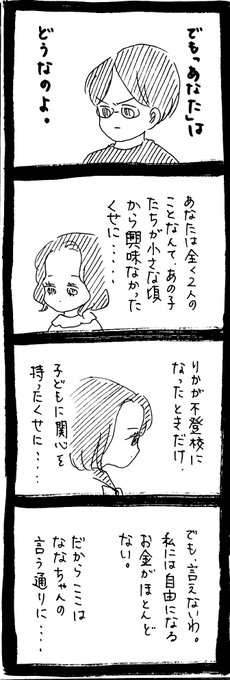 でも「あなた」は
どうなのよ。
あなたは全く2人の
ことなんて、あの子
たちが小さな頃
から興味なかった
くせに・・・・・
りかが不登校に
なったときだけ、
子どもに関心を
持ったくせに・・・・
でも、言えないわ。
私には自由になる
お金がほとんど
ない。
だからここは
ななちゃんの
言う通りに・・・・